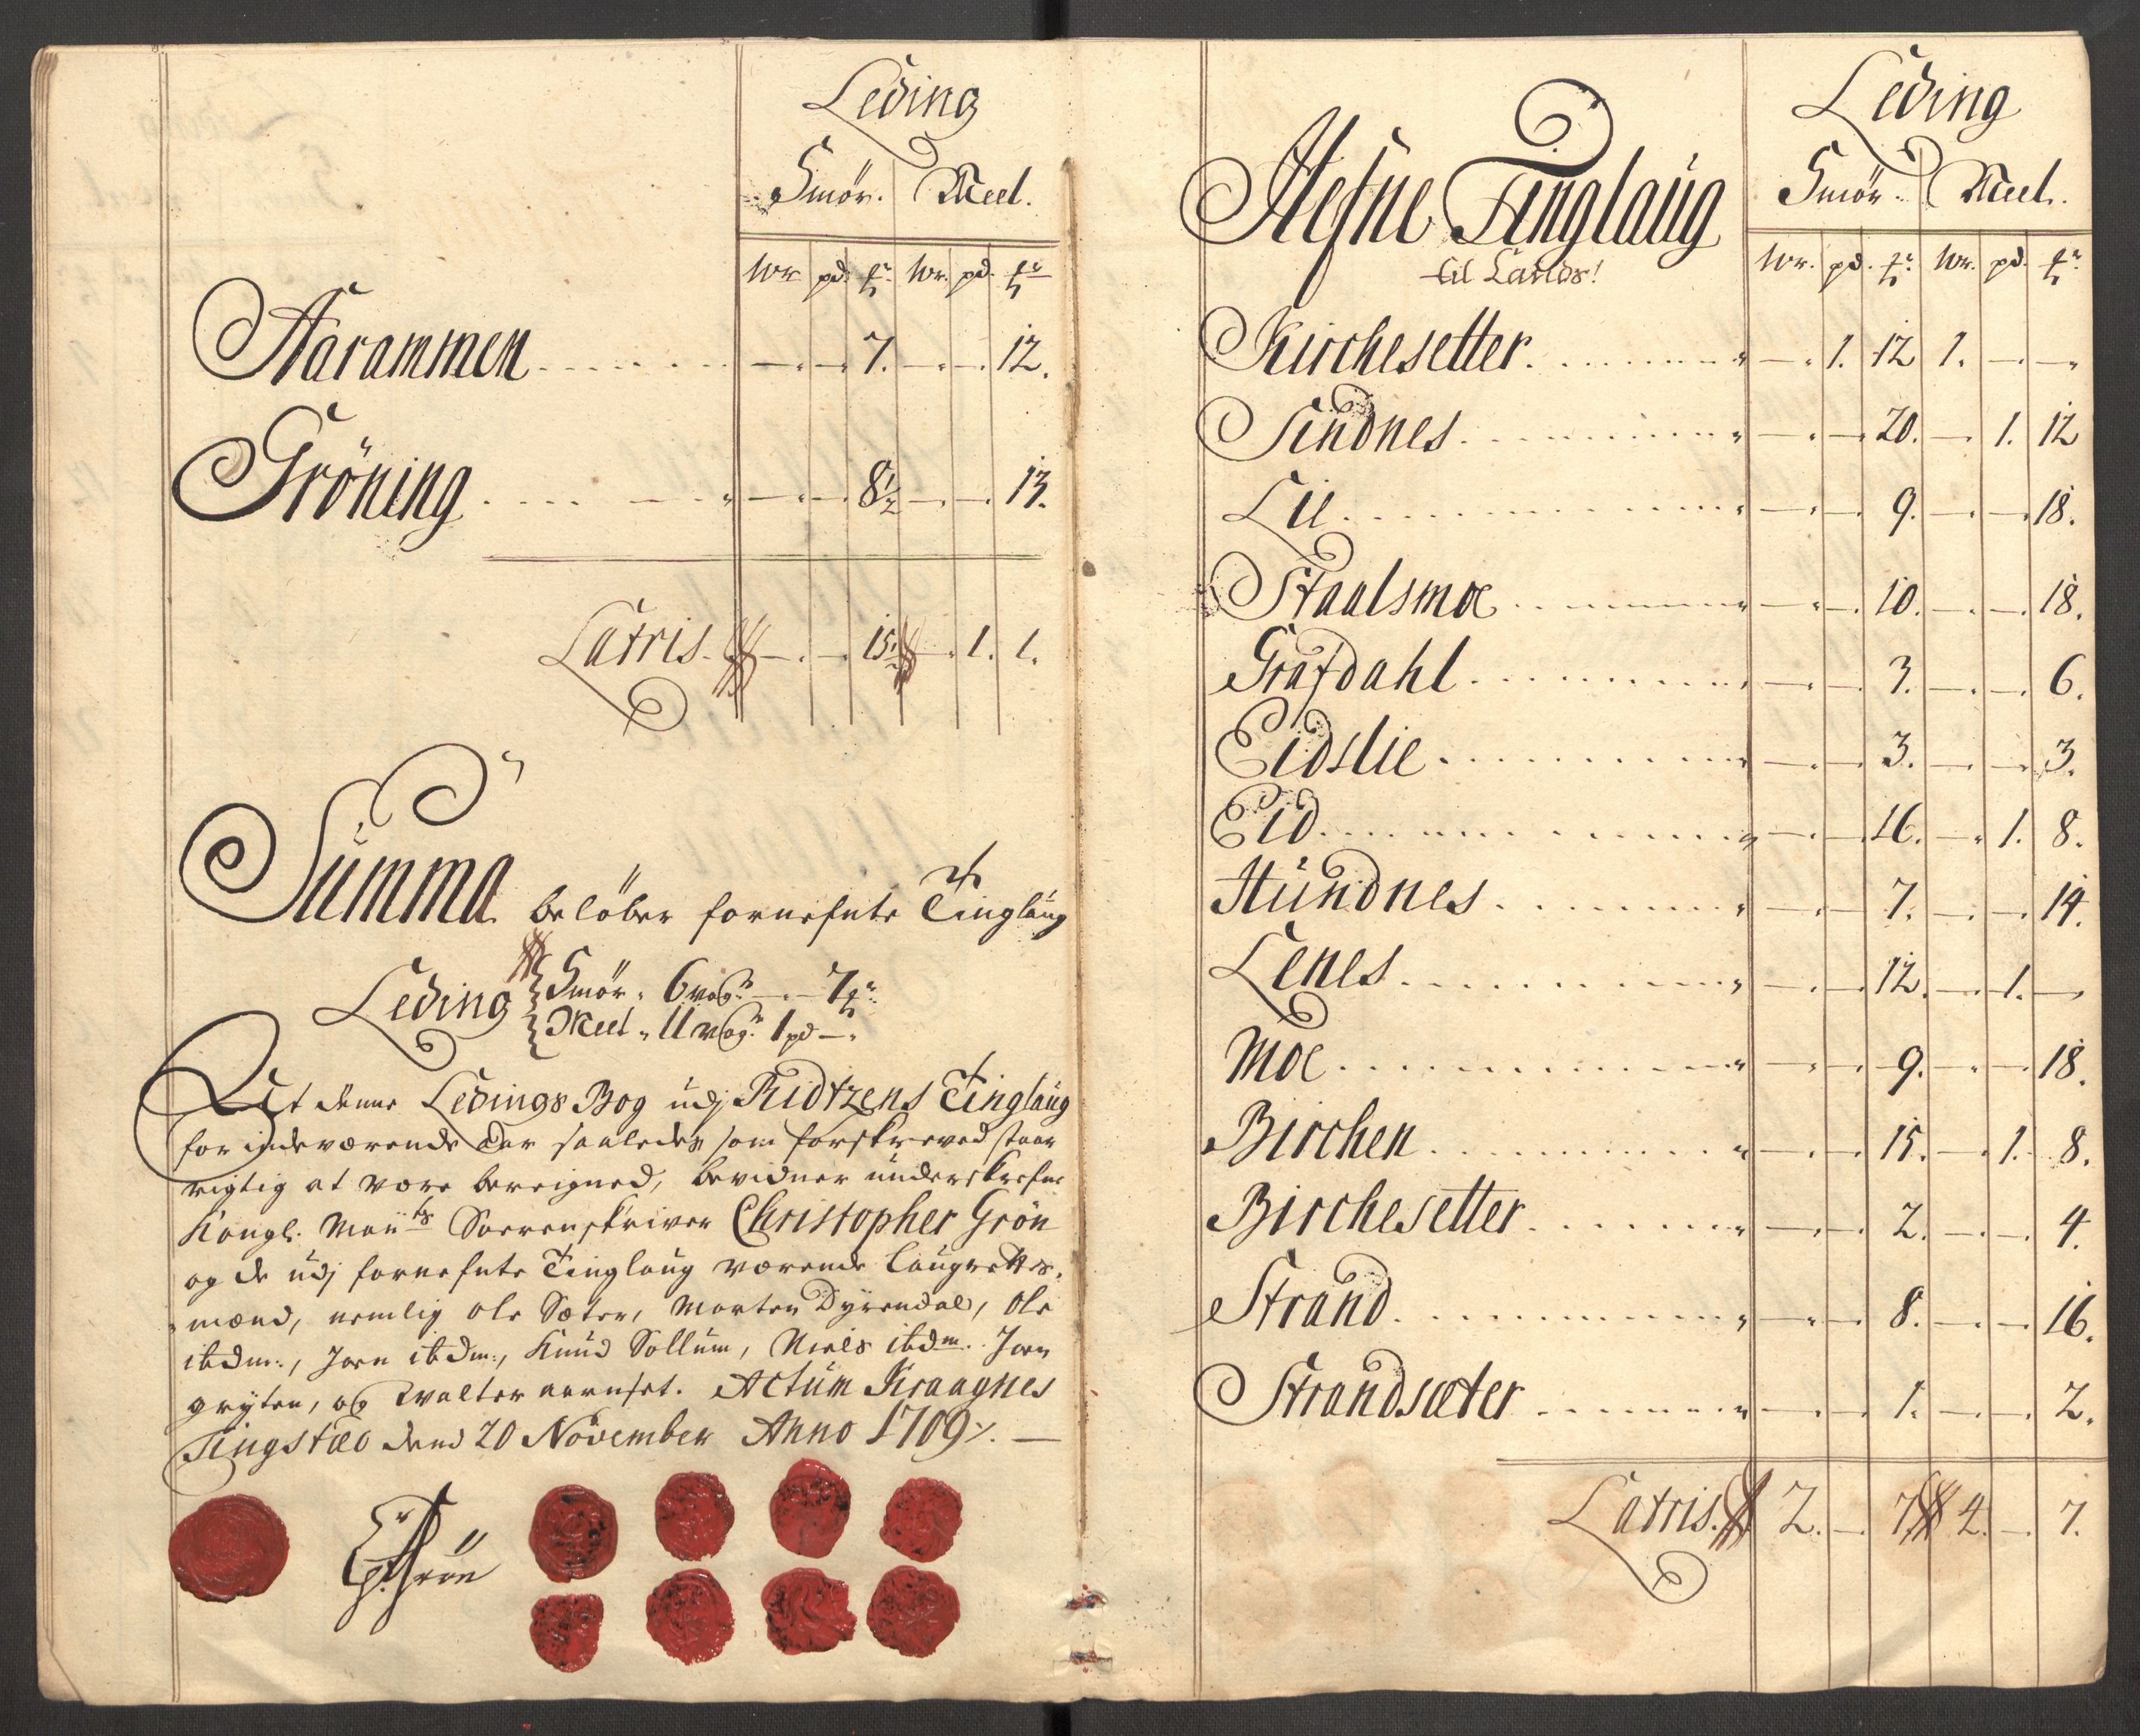 Leding
Smör. Meel.
wr pd. tr wr. pd. tr
Aarammen — — 7. — — 12.
Gröning — — 8½ — — 13.
Latris — — 15½ — 1. 1.
Summa belöber fornefnte Tinglaug
Leding Smör. 6 vog — 7
Meel. 11 vog. 1 pd —
At denne Ledings Bog udj Ridtzens Tinglaug
for indeværende Aar saaledes som forskreved staar
rigtig at være bereigned, bevidner underskrefne
Kongl. Maÿts Sorrenskriver Christopher Grön
og de udj fornefnte Tinglaug værende Laugrettes-
mænd, nemlig Ole Sæter, Morten Dÿrendal, Ole
ibdm:, Joen ibdm:, Knud Sollum, Niels ibdm. Joen
grÿten, og Wolter aarnset. Actum Kraagnes
Tingstæd dend 20 November Anno 1709. —
Grön
Leding
Hefne Tinglaug
Smör. Meel.
til Lands!
wr. pd. tr. wr. pd. tr.
Kirchesetter. — 1. 12 1. — —
Sindnes. — — 20. — 1. 12
Lie — — 9. — — 18.
Staalsmoe — — 10. — — 18.
Grafdahl — — 3. — — 6.
Eidslie — — 3. — — 3.
Eid — — 16. — 1. 8.
Hundnes — — 7. — — 14.
Lenes — — 12. — 1. —
Moe — — 9. — — 18.
Birchen — — 15. — 1. 8.
Birchesetter — — 2. — — 4.
Strand — — 8. — — 16.
Strandsæter — — 1. — — 2.
Latris. 2. — 7 4. — 7.